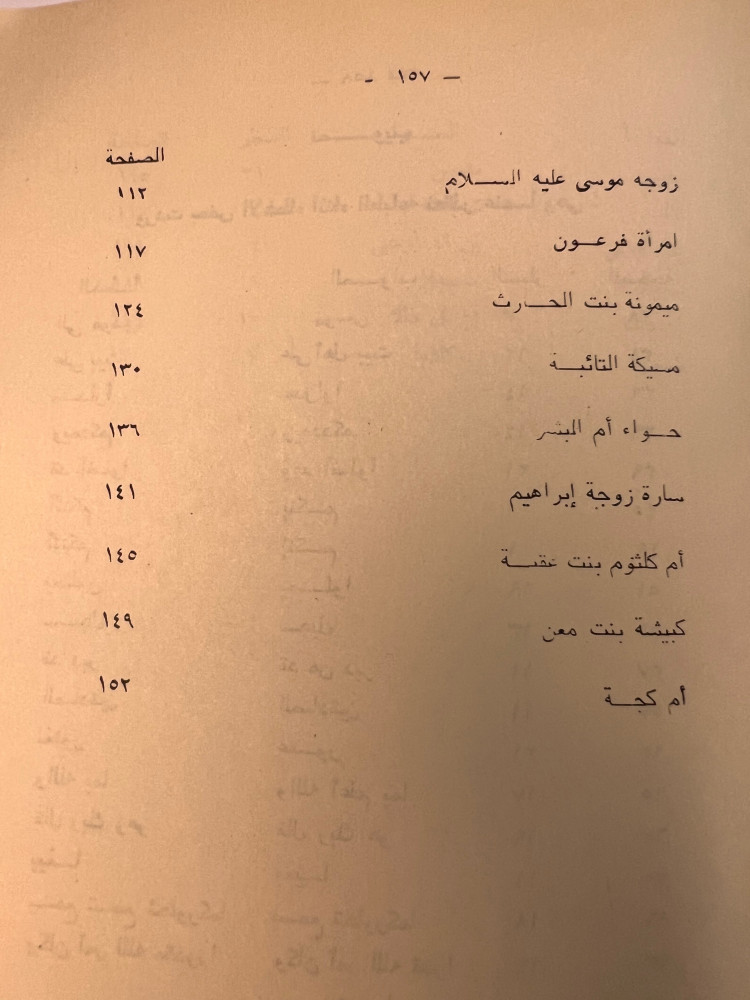 — ١٥٧ -
الصفحة
زوجه موسى عليه السلام ١١٢
امرأة فرعون ١١٧
ميمونة بنت الحارث ١٢٤
مسيكة التائبة ١٣٠
حواء أم البشر ١٣٦
سارة زوجة إبراهيم ١٤١
أم كلثوم بنت عقبة ١٤٥
كبيشة بنت معن ١٤٩
أم كجة ١٥٢